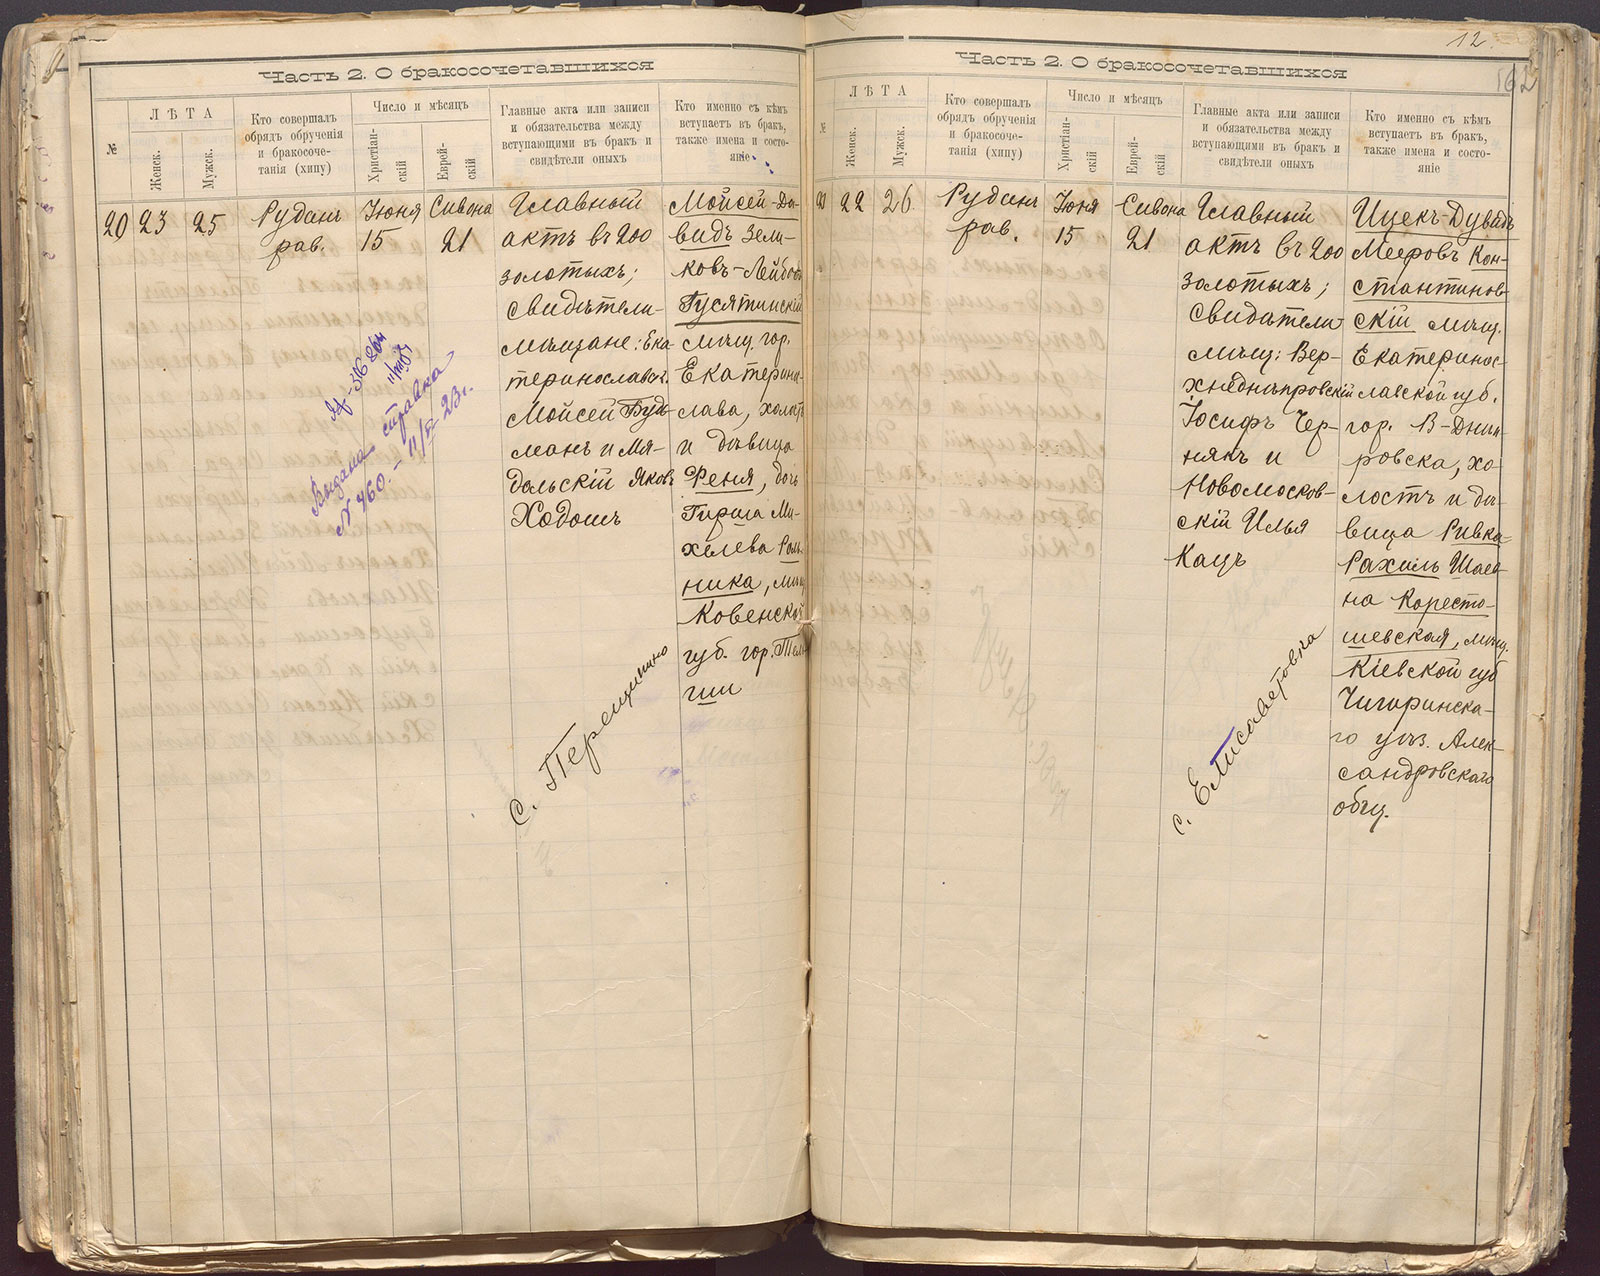 Часть 2. О бракосочетавшихся
№
ЛѢТА
Женск.
Мужск.
Кто совершалъ
обрядъ обрученія
и бракосоче-
танія (хипу)
Число и мѣсяцъ
Христіан-
скій
Еврей-
скій
Главные акта или записи
и обязательства между
вступающими въ бракъ и
свидѣтели оныхъ
Кто именно съ кѣмъ
вступаетъ въ бракъ,
также имена и состо-
яніе
20
23
25
Рудинъ
рав.
Іюня
15
Сивона
21
Главный
актъ въ 200
золотыхъ;
свидѣтели
мѣщане: Ека
теринославск.
Мойсей
манъ и Мя-
дольскій Яковъ
Ходошъ
Мойсей-Да-
видъ Зели-
ковъ-Лейбовъ
Гусятинскій
мѣщ. гор.
Екатерино-
слава, холостъ
и дѣвица
Феня, дочь
Гирша Ми-
хелева
ника, мѣщ.
Ковенской
губ. гор. Тель-
ши
с. Перещипино
Выдана справка
N 460. – 11/ 23г.
12
162
Часть 2. О бракосочетавшихся
№
ЛѢТА
Женск.
Мужск.
Кто совершалъ
обрядъ обрученія
и бракосоче-
танія (хипу)
Число и мѣсяцъ
Христіан-
скій
Еврей-
скій
Главные акта или записи
и обязательства между
вступающими въ бракъ и
свидѣтели оныхъ
Кто именно съ кѣмъ
вступаетъ въ бракъ,
также имена и состо-
яніе
22
26
Рудинъ
рав.
Іюня
15
Сивона
21
Главный
актъ въ 200
золотыхъ;
свидѣтели
мѣщ: Вер-
хнеднѣпровскій
Іосифъ Чер-
някъ и
Новомосков-
скій Илья
Кацъ
Ицекъ-Дувидъ
Мееровъ Кон-
стантинов-
скій мѣщ.
Екатеринос-
лавской губ.
гор. В-Днѣп-
ровска, хо-
лостъ и дѣ-
вица Ривка-
Рахиль Шаев-
на Коросты-
шевская, мѣщ.
Кіевской губ
Чигиринска-
го уѣз. Алек-
сандровскаго
общ.
с. Елисаветовка